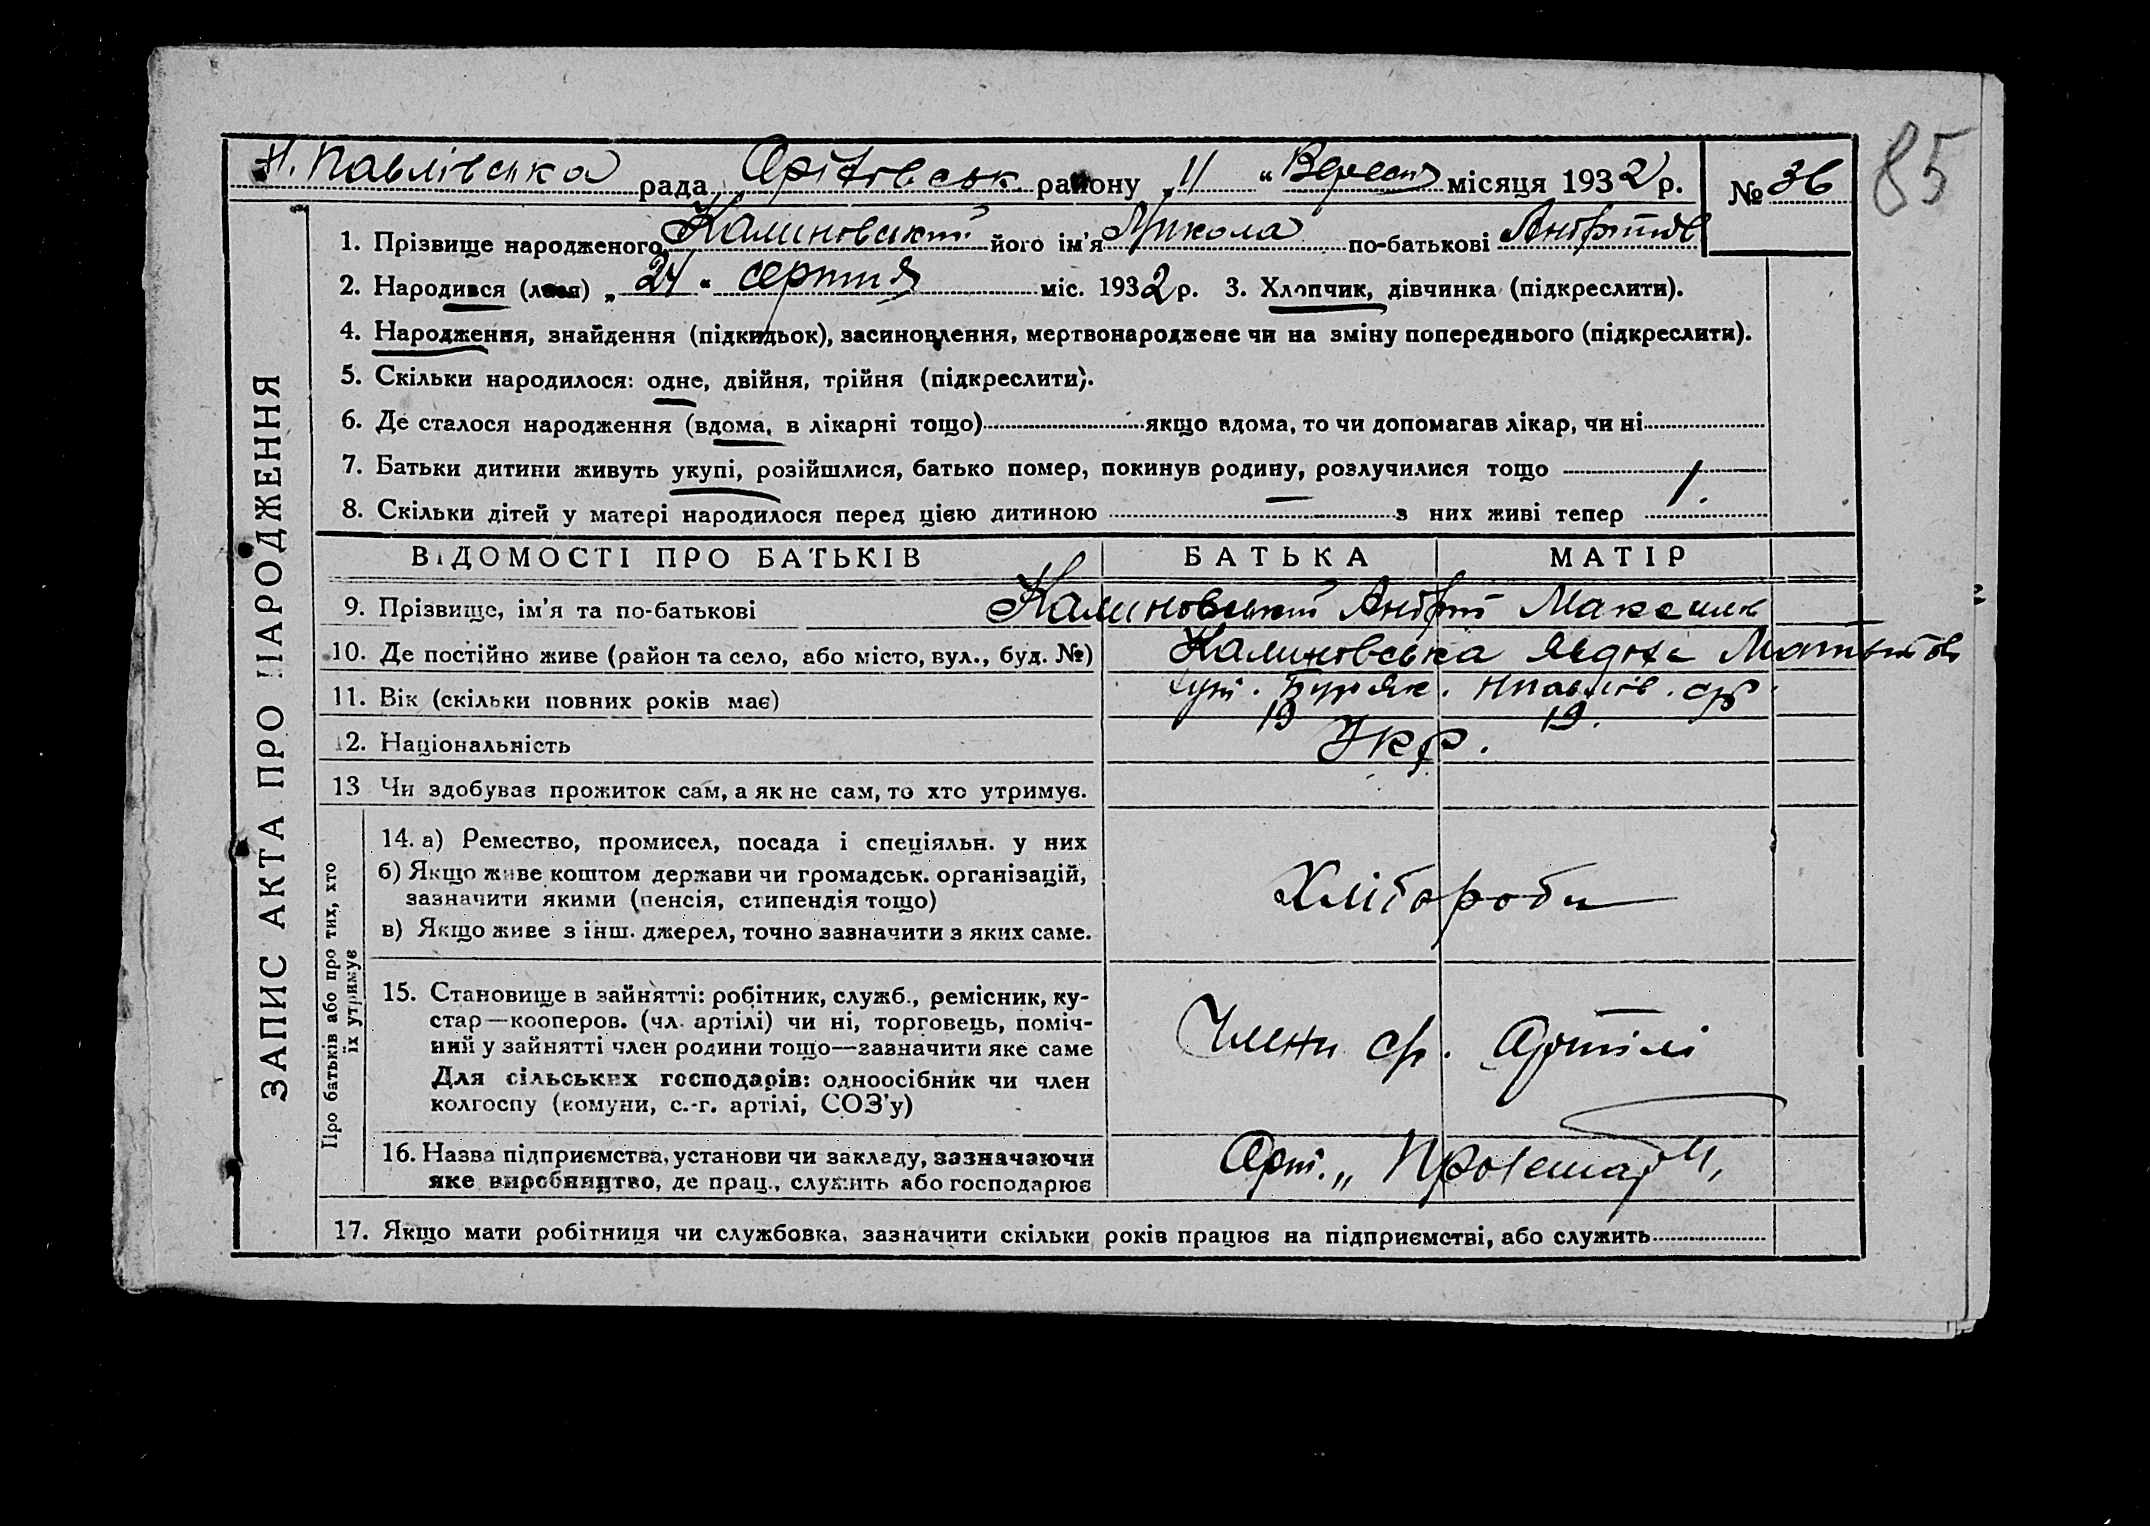 Н. Павлівська рада Оріховськ. району „11“ Вересня місяця 1932 р. № 36
85
1. Прізвище народженого Калиновський його ім'я Микола по-батькові Андрійов
2. Народився (лася) „24“ серпня міс. 1932 р. 3. Хлопчик, дівчинка (підкреслити).
4. Народження, знайдення (підкидьок), засиновлення, мертвонароджене чи на зміну попереднього (підкреслити).
5. Скільки народилося: одне, двійня, трійня (підкреслити).
6. Де сталося народження (вдома, в лікарні тощо) якщо вдома, то чи допомагав лікар, чи ні
7. Батьки дитини живуть укупі, розійшлися, батько помер, покинув родину, розлучилися тощо
8. Скільки дітей у матері народилося перед цією дитиною — з них живі тепер 1.
ЗАПИС АКТА ПРО НАРОДЖЕННЯ
ВІДОМОСТІ ПРО БАТЬКІВ БАТЬКА МАТІР
9. Прізвище, ім'я та по-батькові Калиновський Андрій Максим
10. Де постійно живе (район та село, або місто, вул., буд. №) Калиновська Явдоха
11. Вік (скільки повних років має)
19 19.
12. Національність Укр.
13 Чи здобуває прожиток сам, а як не сам, то хто утримує.
Про батьків або про тих, хто їх утримує
14. а) Ремество, промисел, посада і спеціяльн. у них
б) Якщо живе коштом держави чи громадськ. організацій,
зазначити якими (пенсія, стипендія тощо)
в) Якщо живе з інш. джерел, точно зазначити з яких саме.
Хлібороби
15. Становище в зайнятті: робітник, служб., ремісник, ку-
стар—кооперов. (чл. артілі) чи ні, торговець, поміч-
ний у зайнятті член родини тощо—зазначити яке саме
Для сільських господарів: одноосібник чи член
колгоспу (комуни, с.-г. артілі, СОЗ'у)
Члени с/г. Артілі
16. Назва підприємства, установи чи закладу, зазначаючи
яке виробництво, де прац., служить або господарює
Арт.
17. Якщо мати робітниця чи службовка, зазначити скільки років працює на підприємстві, або служить